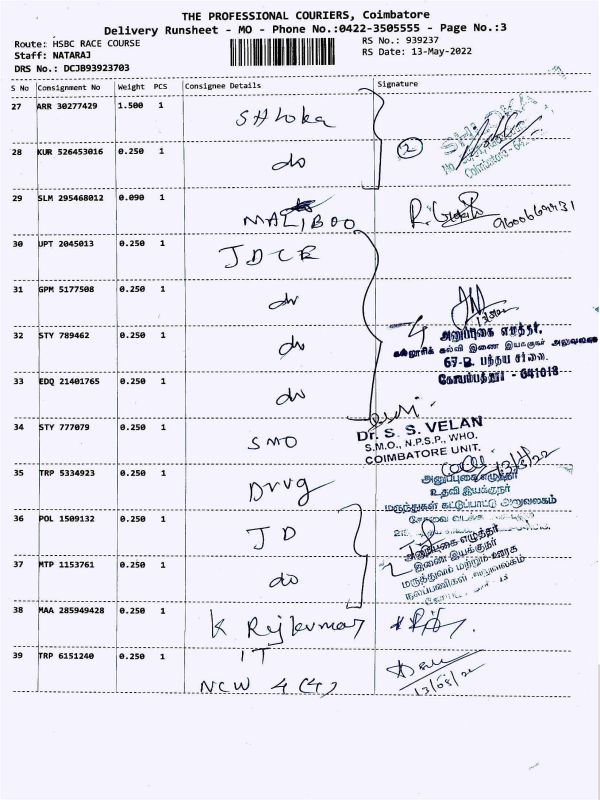 THE PROFESSIONAL COURIERS, Coimbatore
Delivery Runsheet - MO - Phone No.:0422-3505555 - Page No.:3
Route: HSBC RACE COURSE
RS No.: 939237
Staff: NATARAJ
RS Date: 13-May-2022
DRS No.: DCJB93923703
S No Consignment No Weight PCS Consignee Details Signature
27 ARR 30277429 1.500 1 Shloka
28 KUR 526453016 0.250 1 do 2
Coimbatore - 64
29 SLM 295468012 0.090 1 MALIBOO
30 UPT 2045013 0.250 1 JDCE
31 GPM 5177508 0.250 1 do
32 STY 789462 0.250 1 do 4
அனுப்புகை எழுத்தர்,
கல்லூரிக் கல்வி இணை இயக்குநர் அலுவலகம்
67-B, பந்தய சாலை,
கோயம்புத்தூர் - 641018
33 EDQ 21401765 0.250 1 do
34 STY 777079 0.250 1 SMO
Dr. S. S. VELAN
S.M.O., N.P.S.P., WHO.
COIMBATORE UNIT.
13/5/22
35 TRP 5334923 0.250 1 Drug
அனுப்புகை எழுத்தர்
உதவி இயக்குநர்
மருந்துகள் கட்டுப்பாட்டு அலுவலகம்
36 POL 1509132 0.250 1 JD
அனுப்புகை எழுத்தர்
இணை இயக்குநர்
மருத்துவம் மற்றும் ஊரக
நலப்பணிகள் அலுவலகம்
37 MTP 1153761 0.250 1 do
38 MAA 285949428 0.250 1 K Rajkumar
39 TRP 6151240 0.250 1 IT
NCW 4 (4)
13/05/22